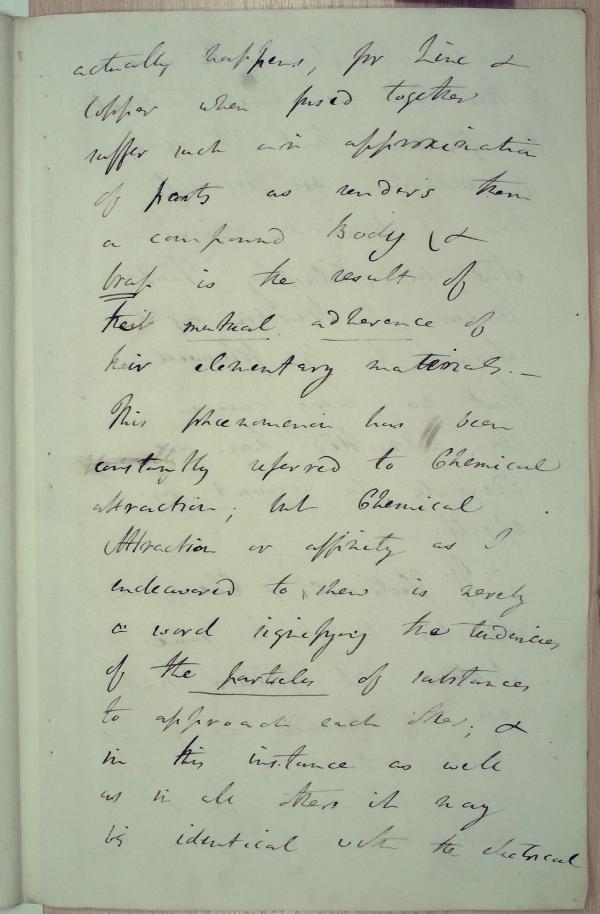 actually happens, for Zinc &
Copper when fused together
suffer such an approximation
of parts as renders them
a compound Body (&
brass is the result of
their mutual adherence of
their elementary materials. —
This phænomenon has been
constantly referred to Chemical
attraction; but Chemical
Attraction or affinity as I
endeavored to shew is merely
a word signifying the tendencies
of the particles of substances
to approach each other; &
in this instance as well
as in all others it may
be identical with the electrical